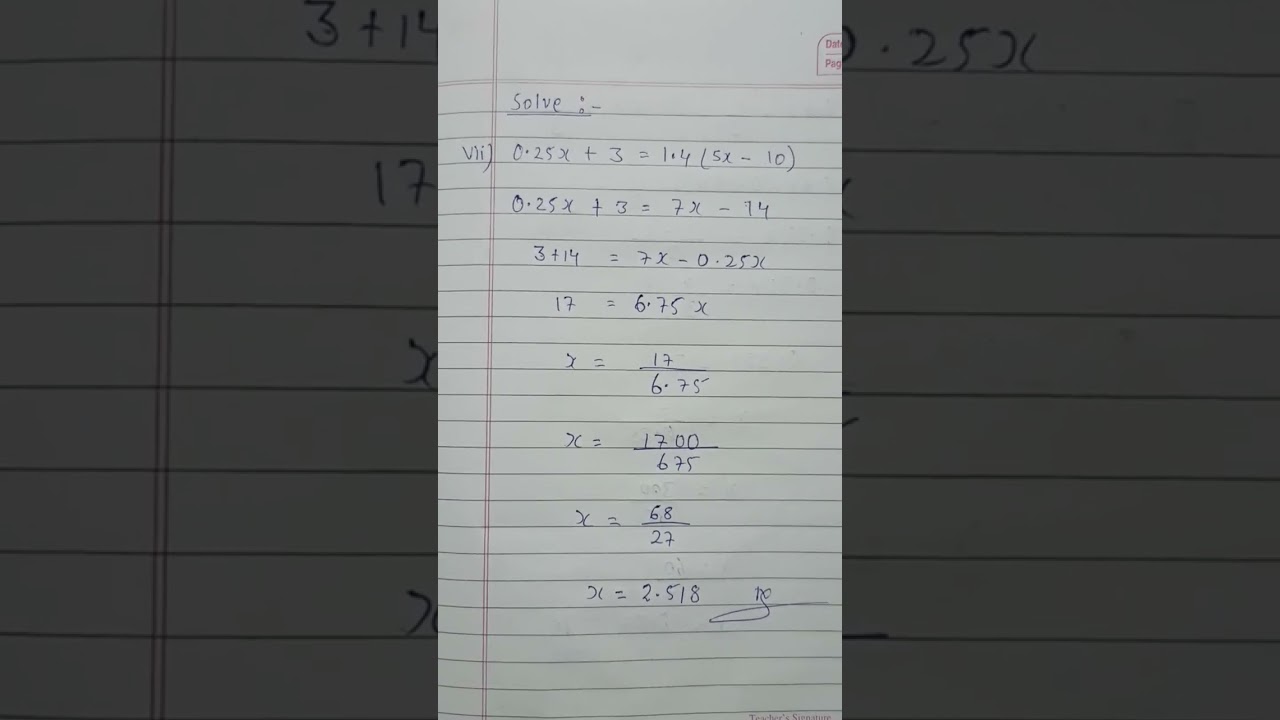 Date
Pag
Solve :-
vii) 0.25x + 3 = 1.4 (5x - 10)
0.25x + 3 = 7x - 14
3+14 = 7x - 0.25x
17 = 6.75 x
x = 17/6.75
x = 1700/675
x = 68/27
x = 2.518
Teacher's Signature